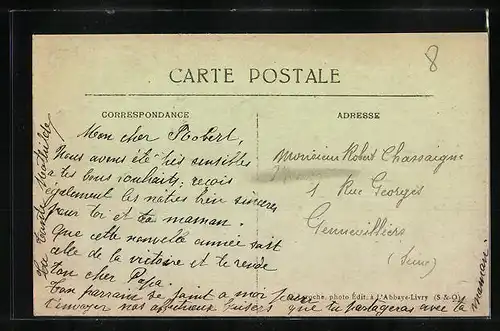 8
CARTE POSTALE
CORRESPONDANCE
ADRESSE
Mon cher Robert,
Nous avons été très sensibles
à tes bons souhaits; reçois
également les nôtres bien sincères
pour toi et ta maman.
Que cette nouvelle année soit
celle de la victoire et te rende
ton cher Papa.
Ton parrain se joint à moi pour
t'envoyer nos affectueux baisers que tu partageras avec ta
maman.
Ta Mathilde
Monsieur Robert Chassaigne
1 Rue Georges
Gennevilliers
(Seine)
photo Édit. à l'Abbaye-Livry (S & O)